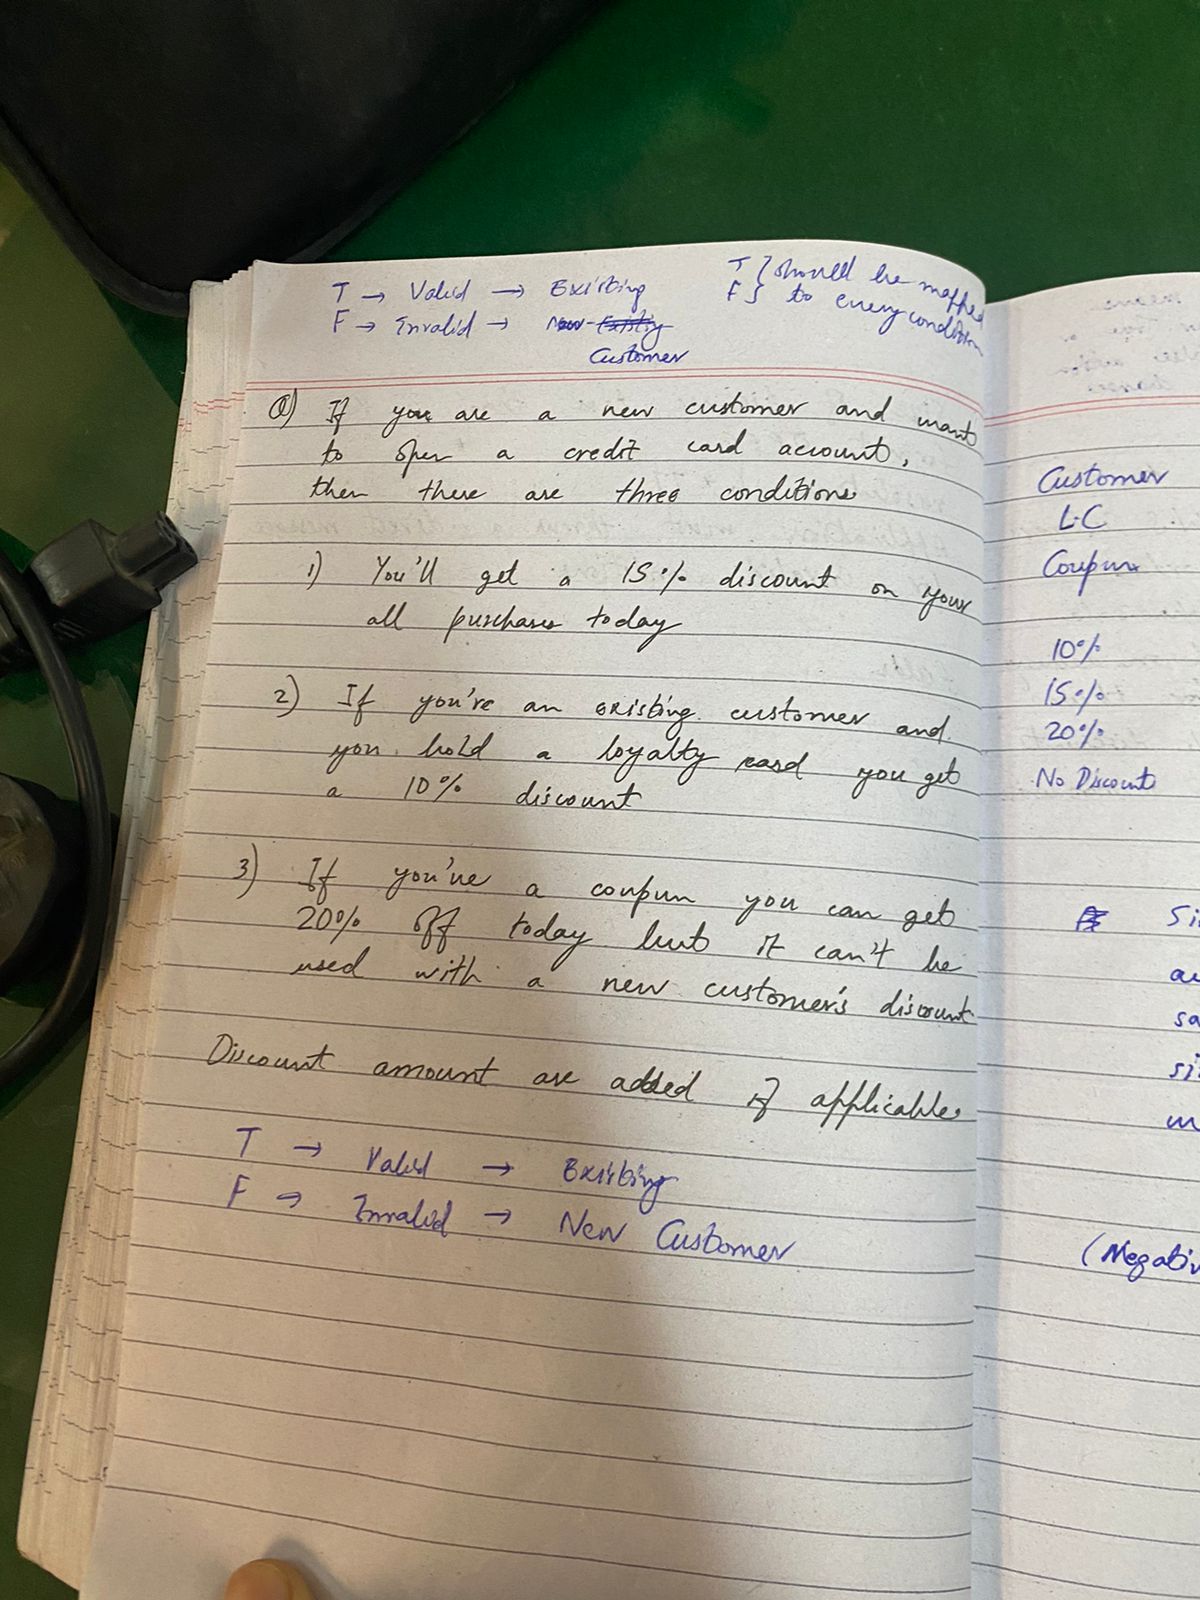 T → Valid → Existing
F → Invalid → New Existing
Customer
T } should be mapped
F } to every condition
Q) If you are a new customer and want
to open a credit card account,
then there are three conditions
1) You'll get a 15% discount on your
all purchases today
2) If you're an existing customer and
you hold a loyalty card you get
a 10% discount
3) If you've a coupun you can get
20% off today but it can't be
used with a new customer's discount
Discount amount are added if applicable.
T → Valid → Existing
F → Invalid → New Customer
Customer
L.C
Coupun
10%
15%
20%
No Discount
(Negativ